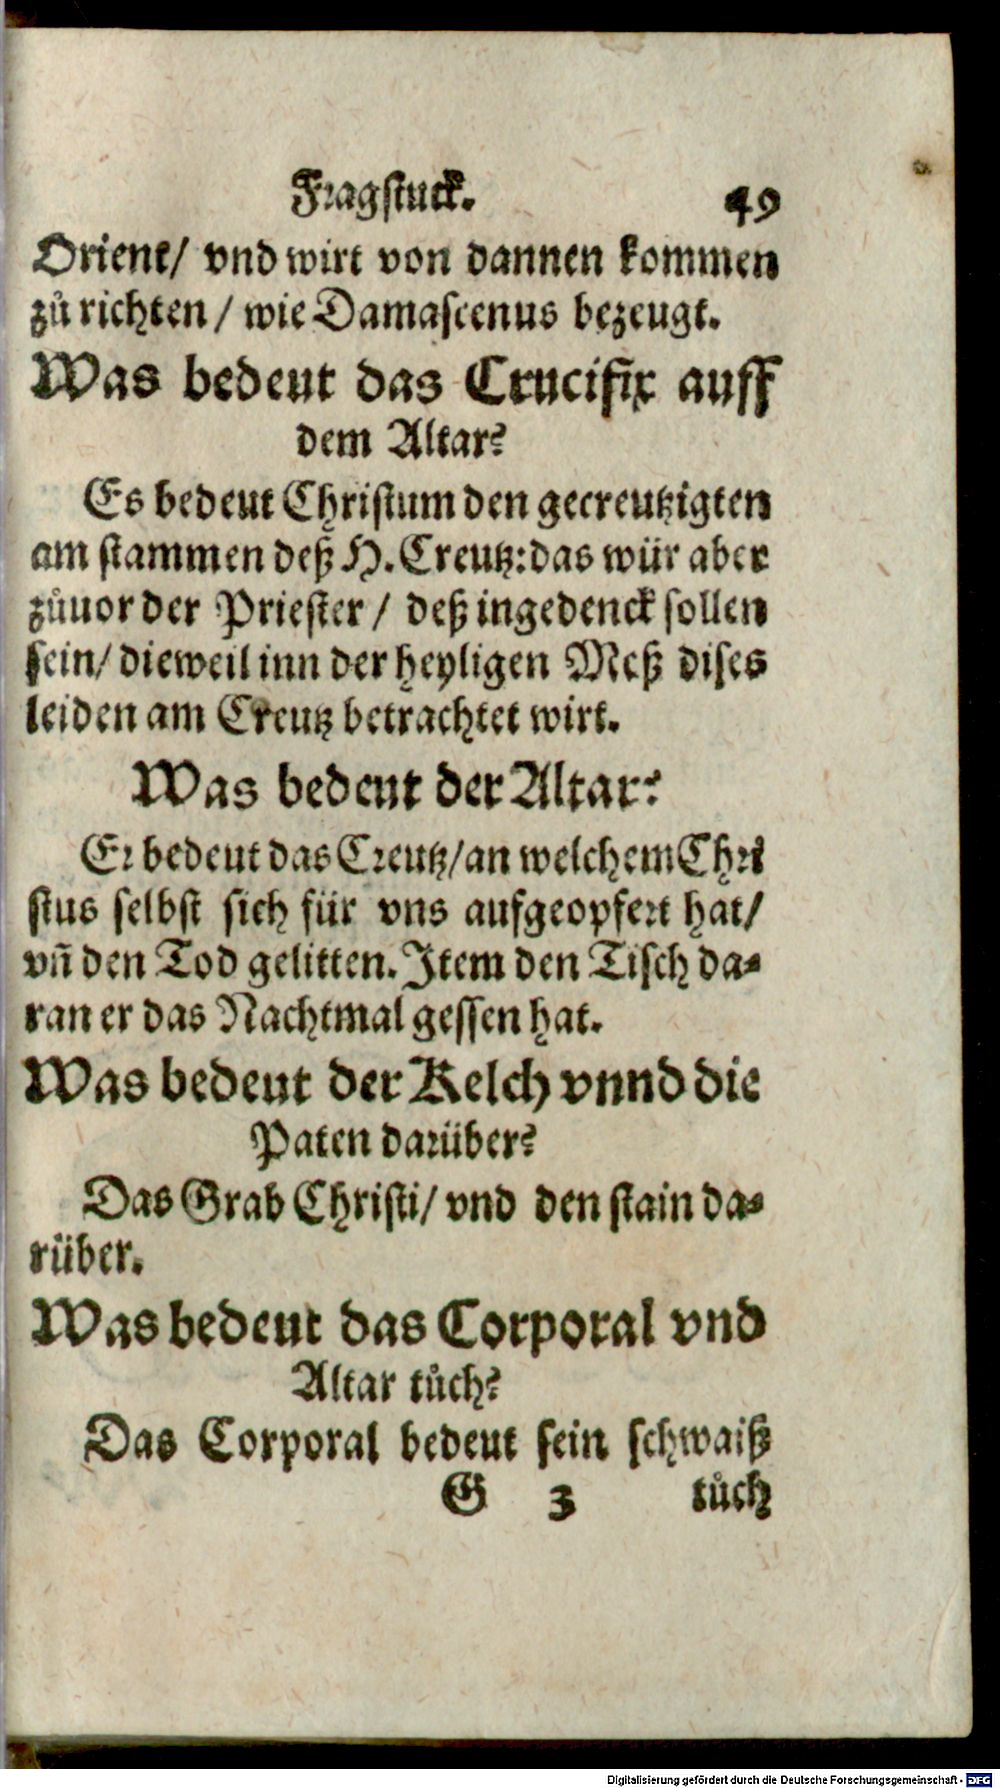 Fragstuck. 49
Orient/ vnd wirt von dannen kommen
zů richten / wie Damascenus bezeugt.
Was bedeut das Crucifix auff
dem Altar?
Es bedeut Christum den gecreutzigten
am stammen deß H. Creutz: das wür aber
zůuor der Priester / deß ingedenck sollen
sein/ dieweil inn der heyligen Meß dises
leiden am Creutz betrachtet wirt.
Was bedeut der Altar?
Er bedeut das Creutz/ an welchem Chri
stus selbst sich für vns aufgeopfert hat/
vñ den Tod gelitten. Item den Tisch da-
ran er das Nachtmal gessen hat.
Was bedeut der Kelch vnnd die
Paten darüber?
Das Grab Christi/ vnd den stain da-
rüber.
Was bedeut das Corporal vnd
Altar tůch?
Das Corporal bedeut sein schwaiß
G 3 tůch
Digitalisierung gefördert durch die Deutsche Forschungsgemeinschaft - DFG